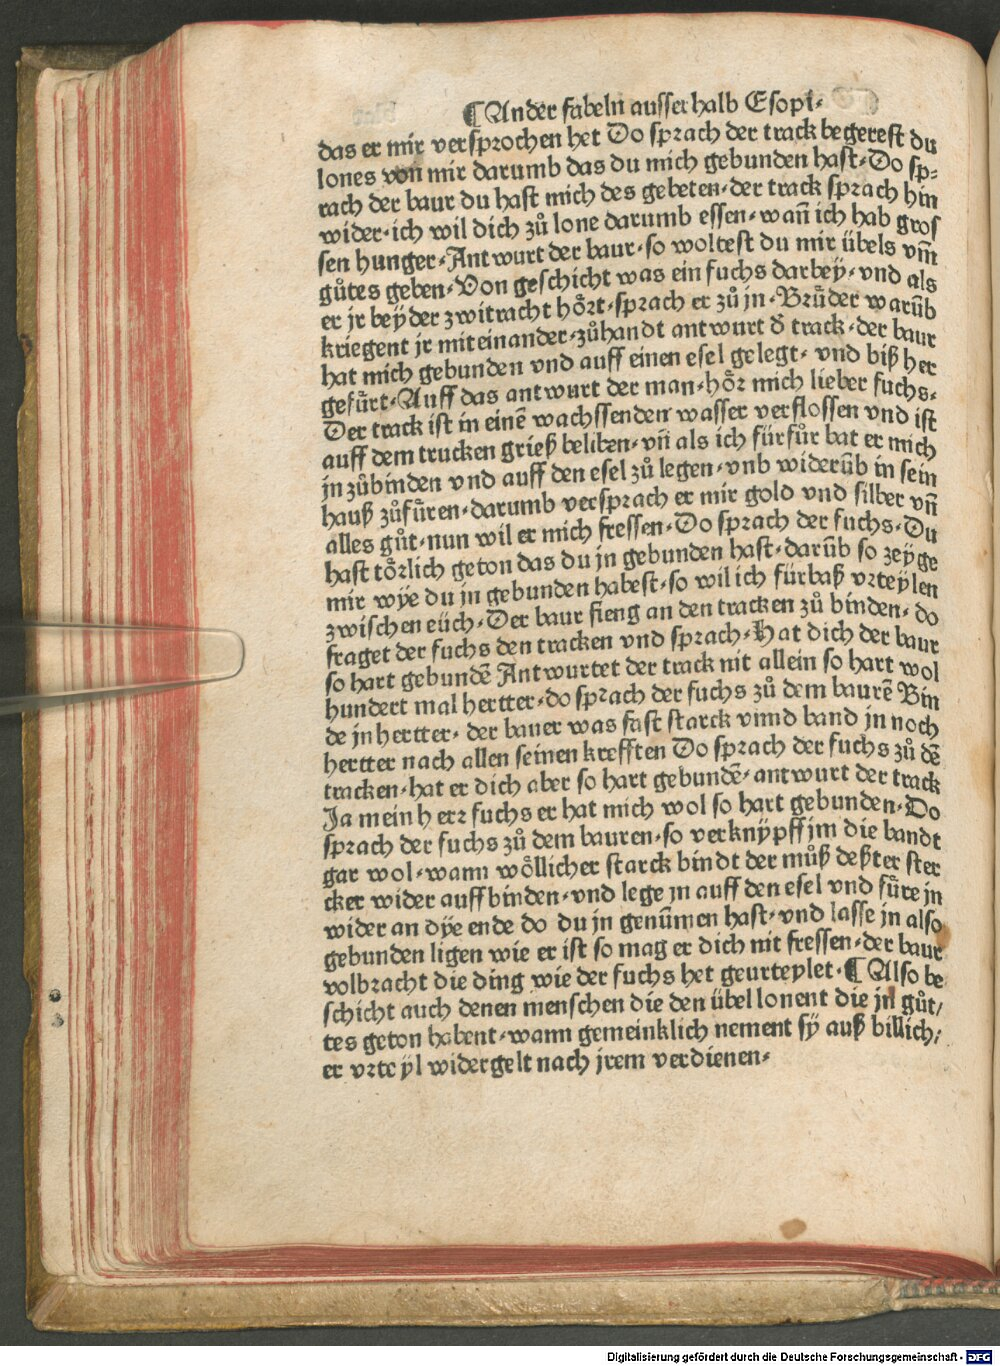 ¶Ander fabeln ausserhalb Esopi⸗
das er mir versprochen het Do sprach der track begerest du
lones von mir darumb das du mich gebunden hast⸗Do sp⸗
rach der baur du hast mich des gebeten⸗der track sprach hin
wider⸗ich wil dich zů lone darumb essen⸗wañ ich hab gros
sen hunger⸗Antwurt der baur⸗so woltest du mir übels vm̃
gůtes geben⸗Von geschicht was ein fuchs darbey⸗vnd als
er jr beyder zwitracht hoͤrt⸗sprach er zů jn⸗Bruͤder warūb
kriegent jr miteinander⸗zůhandt antwurt d̕ track⸗der baur
hat mich gebunden vnd auff einen esel gelegt⸗ vnd biß her
gefuͤrt⸗Auff das antwurt der man⸗hoͤr mich lieber fuchs⸗
Der track ist in einē wachssenden wasser verflossen vnd ist
auff dem trucken grieß beliben⸗vñ als ich fürfůr bat er mich
jn zůbinden vnd auff den esel zů legen⸗vnb widerūb in sein
hauß zůfuͤren⸗darumb versprach er mir gold vnd silber vñ
alles gůt⸗nun wil er mich fressen⸗Do sprach der fuchs⸗Du
hast toͤrlich geton das du jn gebunden hast⸗darūb so zeyge
mir wÿe du jn gebunden habest⸗so wil ich fürbaß vrteylen
zwischen eüch⸗Der baur fieng an den tracken zů binden⸗do
fraget der fuchs den tracken vnd sprach⸗Hat dich der baur
so hart gebundē Antwurtet der track nit allein so hart wol
hundert mal hertter⸗do sprach der fuchs zů dem baurē Bin
de jn hertter⸗ der bauer was fast starck vnnd band jn noch
hertter nach allen seinen krefften Do sprach der fuchs zů dē
tracken⸗hat er dich aber so hart gebundē⸗antwurt der track
Ja mein herr fuchs er hat mich wol so hart gebunden⸗Do
sprach der fuchs zů dem bauren⸗so verknÿpff jm die bandt
gar wol⸗wann woͤllicher starck bindt der můß deßter ster
cker wider auffbinden⸗vnd lege jn auff den esel vnd fuͤre jn
wider an dÿe ende do du jn genūmen hast⸗vnd lasse jn also
gebunden ligen wie er ist so mag er dich nit fressen⸗der baur
volbracht die ding wie der fuchs het geurteylet⸗¶Also be
schicht auch denen menschen die den übel lonent die jn gůt/
tes geton habent⸗wann gemeinklich nement sÿ auß billich/
er vrteÿl widergelt nach jrem verdienen⸗
Digitalisierung gefördert durch die Deutsche Forschungsgemeinschaft - DFG